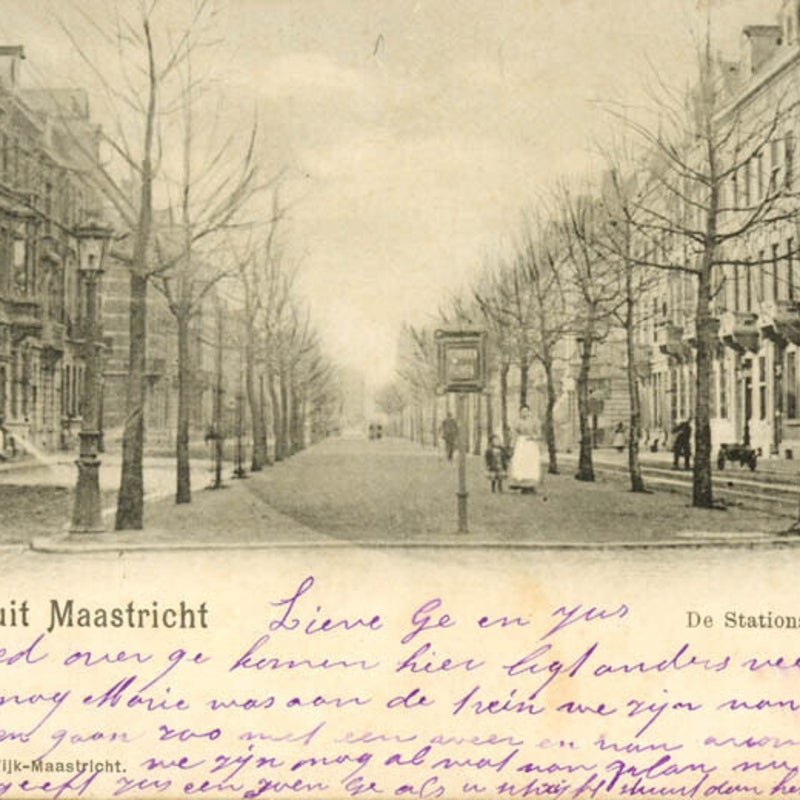 uit Maastricht
De Stations
Lieve Ge en Jus
ed over ge komen hier ligt anders vee
nog Marie was aan de trein we zijn van
en gaan zoo met een weer en van
ijk-Maastricht.
we zijn nog al wat van plan nu
geeft Jus een zoen Ge als u schrijft stuurt dan he